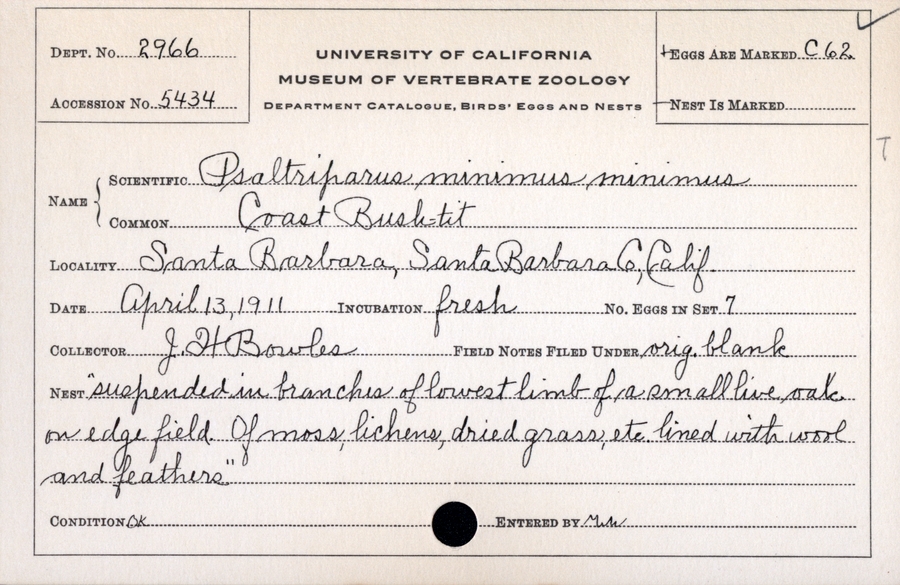 DEPT. No. 2966
ACCESSION No. 5434
UNIVERSITY OF CALIFORNIA
MUSEUM OF VERTEBRATE ZOOLOGY
DEPARTMENT CATALOGUE, BIRDS' EGGS AND NESTS
EGGS ARE MARKED C 62
NEST IS MARKED
T
NAME
SCIENTIFIC Psaltriparus minimus minimus
COMMON Coast Bush-tit
LOCALITY Santa Barbara, Santa Barbara Co, Calif.
DATE April 13, 1911 INCUBATION fresh NO. EGGS IN SET 7
COLLECTOR J. H Bowles FIELD NOTES FILED UNDER orig. blank
NEST "suspended in branches of lowest limb of a small live oak
on edge field. Of moss, lichens, dried grass, etc. lined with wool
and feathers"
CONDITION OK ENTERED BY